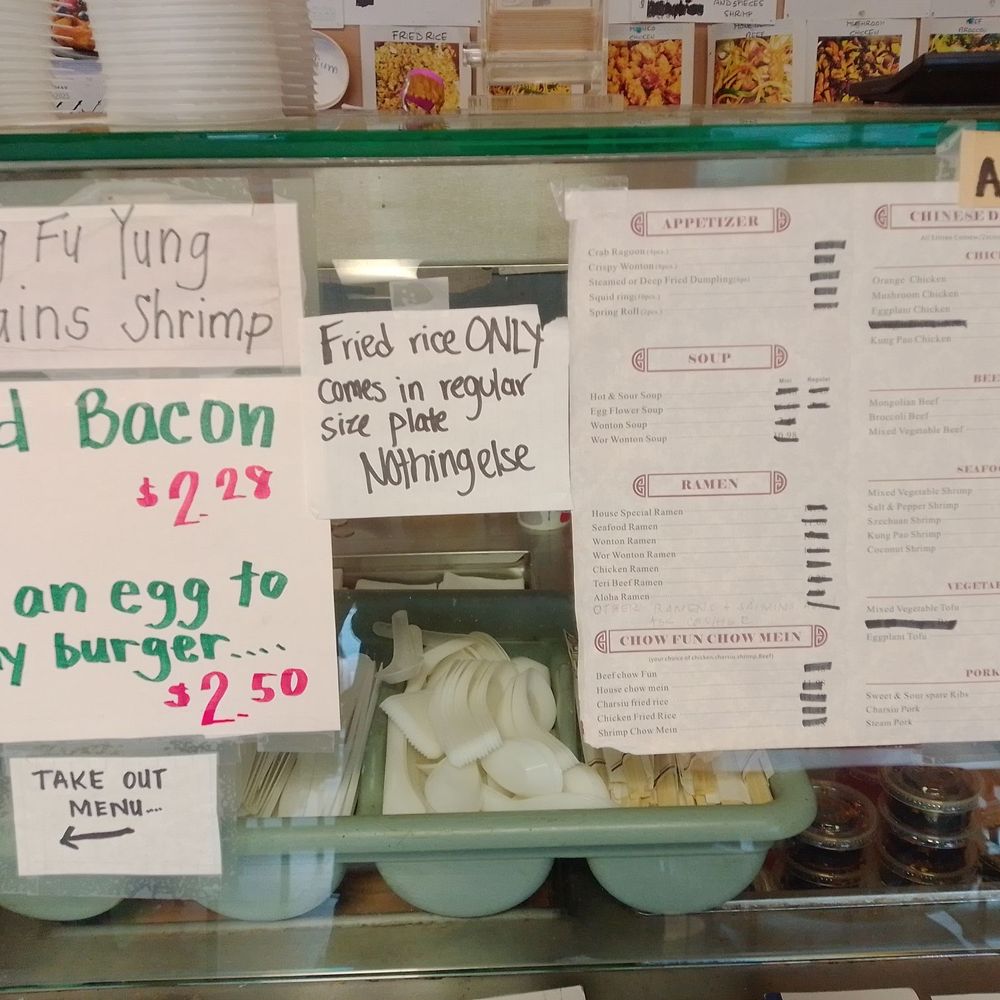 AND SPECES
SHRIMP
FRIED RICE
MUSHROOM
CHICKEN
BEEF
BROCCOLI
Fu Yung
Shrimp
Bacon
$2.28
an egg to
burger....
$2.50
TAKE OUT
MENU....
Fried rice ONLY
comes in regular
size plate
Nothing else
APPETIZER
Crab Ragoon (6pcs.)
Crispy Wonton (8pcs.)
Steamed or Deep Fried Dumpling (6pc)
Squid ring (10pcs.)
Spring Roll (2pcs.)
SOUP
Mini Regular
Hot & Sour Soup
Egg Flower Soup
Wonton Soup
Wor Wonton Soup
RAMEN
House Special Ramen
Seafood Ramen
Wonton Ramen
Wor Wonton Ramen
Chicken Ramen
Teri Beef Ramen
Aloha Ramen
OTHER RAMENS + SAIMINS
CHOW FUN CHOW MEIN
(your choice of chicken,charsiu,shrimp,Beef)
Beef chow Fun
House chow mein
Charsiu fried rice
Chicken Fried Rice
Shrimp Chow Mein
A
CHINESE D
CHIC
Orange Chicken
Mushroom Chicken
Eggplant Chicken
Kung Pao Chicken
BEE
Mongolian Beef
Broccoli Beef
Mixed Vegetable Beef
SEAFO
Mixed Vegetable Shrimp
Salt & Pepper Shrimp
Szechuan Shrimp
Kung Pao Shrimp
Coconut Shrimp
VEGETAB
Mixed Vegetable Tofu
Eggplant Tofu
PORK
Sweet & Sour spare Ribs
Charsiu Pork
Steam Pork